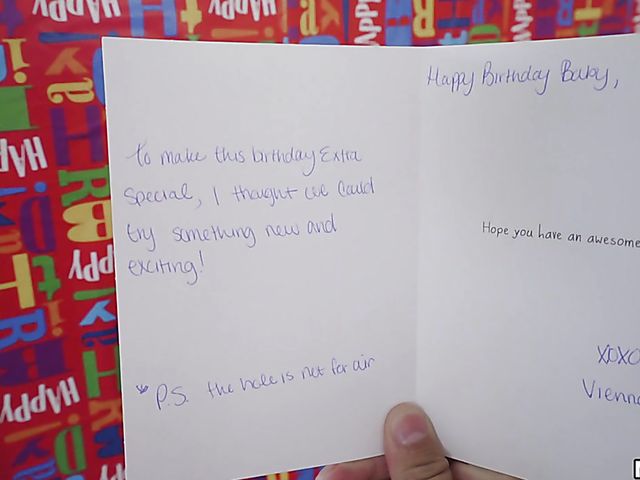 Happy Birthday Baby,
to make this birthday Extra
special, I thought we could
try something new and
exciting!
Hope you have an awesome
XOXO
Vienna
*P.S. the hole is not for air
HAPPY
HAPPY
HAPPY
HAPPY